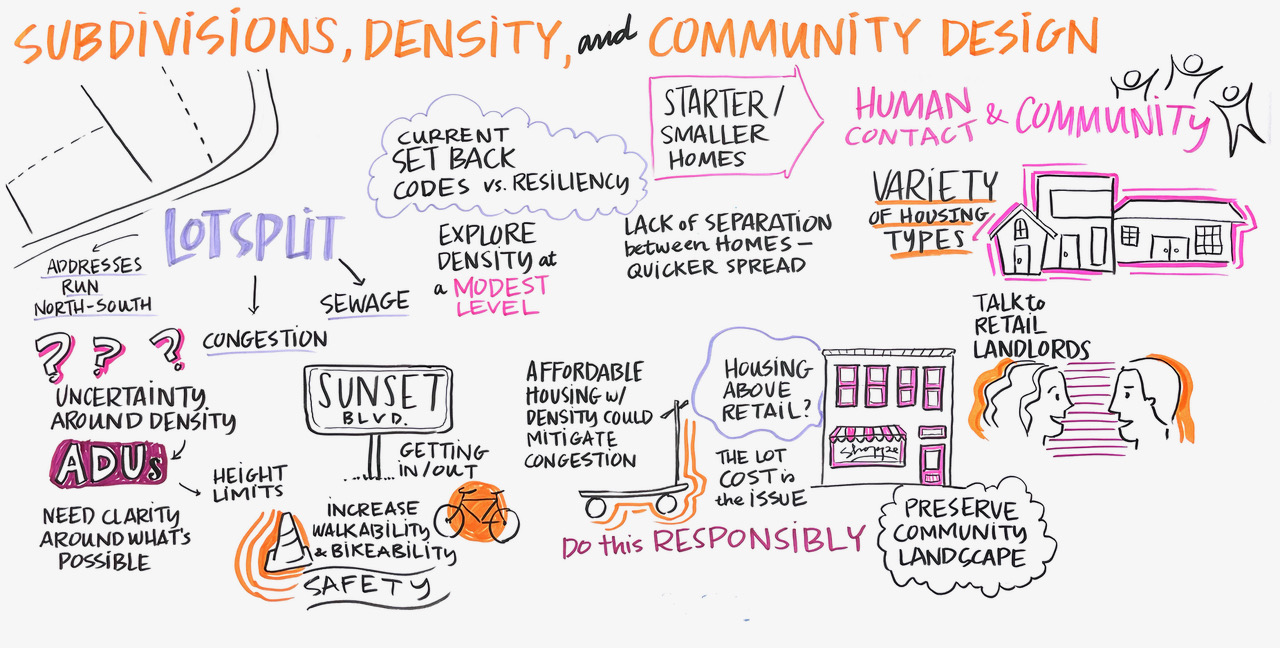 SUBDIVISIONS, DENSITY, and COMMUNITY DESIGN
LOT SPLIT
ADDRESSES
RUN
NORTH-SOUTH
CONGESTION
SEWAGE
? ? ?
UNCERTAINTY
AROUND DENSITY
ADUs
HEIGHT
LIMITS
NEED CLARITY
AROUND WHAT'S
POSSIBLE
CURRENT
SET BACK
CODES vs. RESILIENCY
EXPLORE
DENSITY at
a MODEST
LEVEL
STARTER/
SMALLER
HOMES
LACK of SEPARATION
between HOMES —
QUICKER SPREAD
HUMAN
CONTACT
& COMMUNITY
VARIETY
OF HOUSING
TYPES
SUNSET
BLVD.
GETTING
IN/OUT
INCREASE
WALKABILITY
& BIKEABILITY
SAFETY
AFFORDABLE
HOUSING w/
DENSITY COULD
MITIGATE
CONGESTION
HOUSING
ABOVE
RETAIL?
THE LOT
COST is
the ISSUE
Do this RESPONSIBLY
TALK to
RETAIL
LANDLORDS
PRESERVE
COMMUNITY
LANDSCAPE